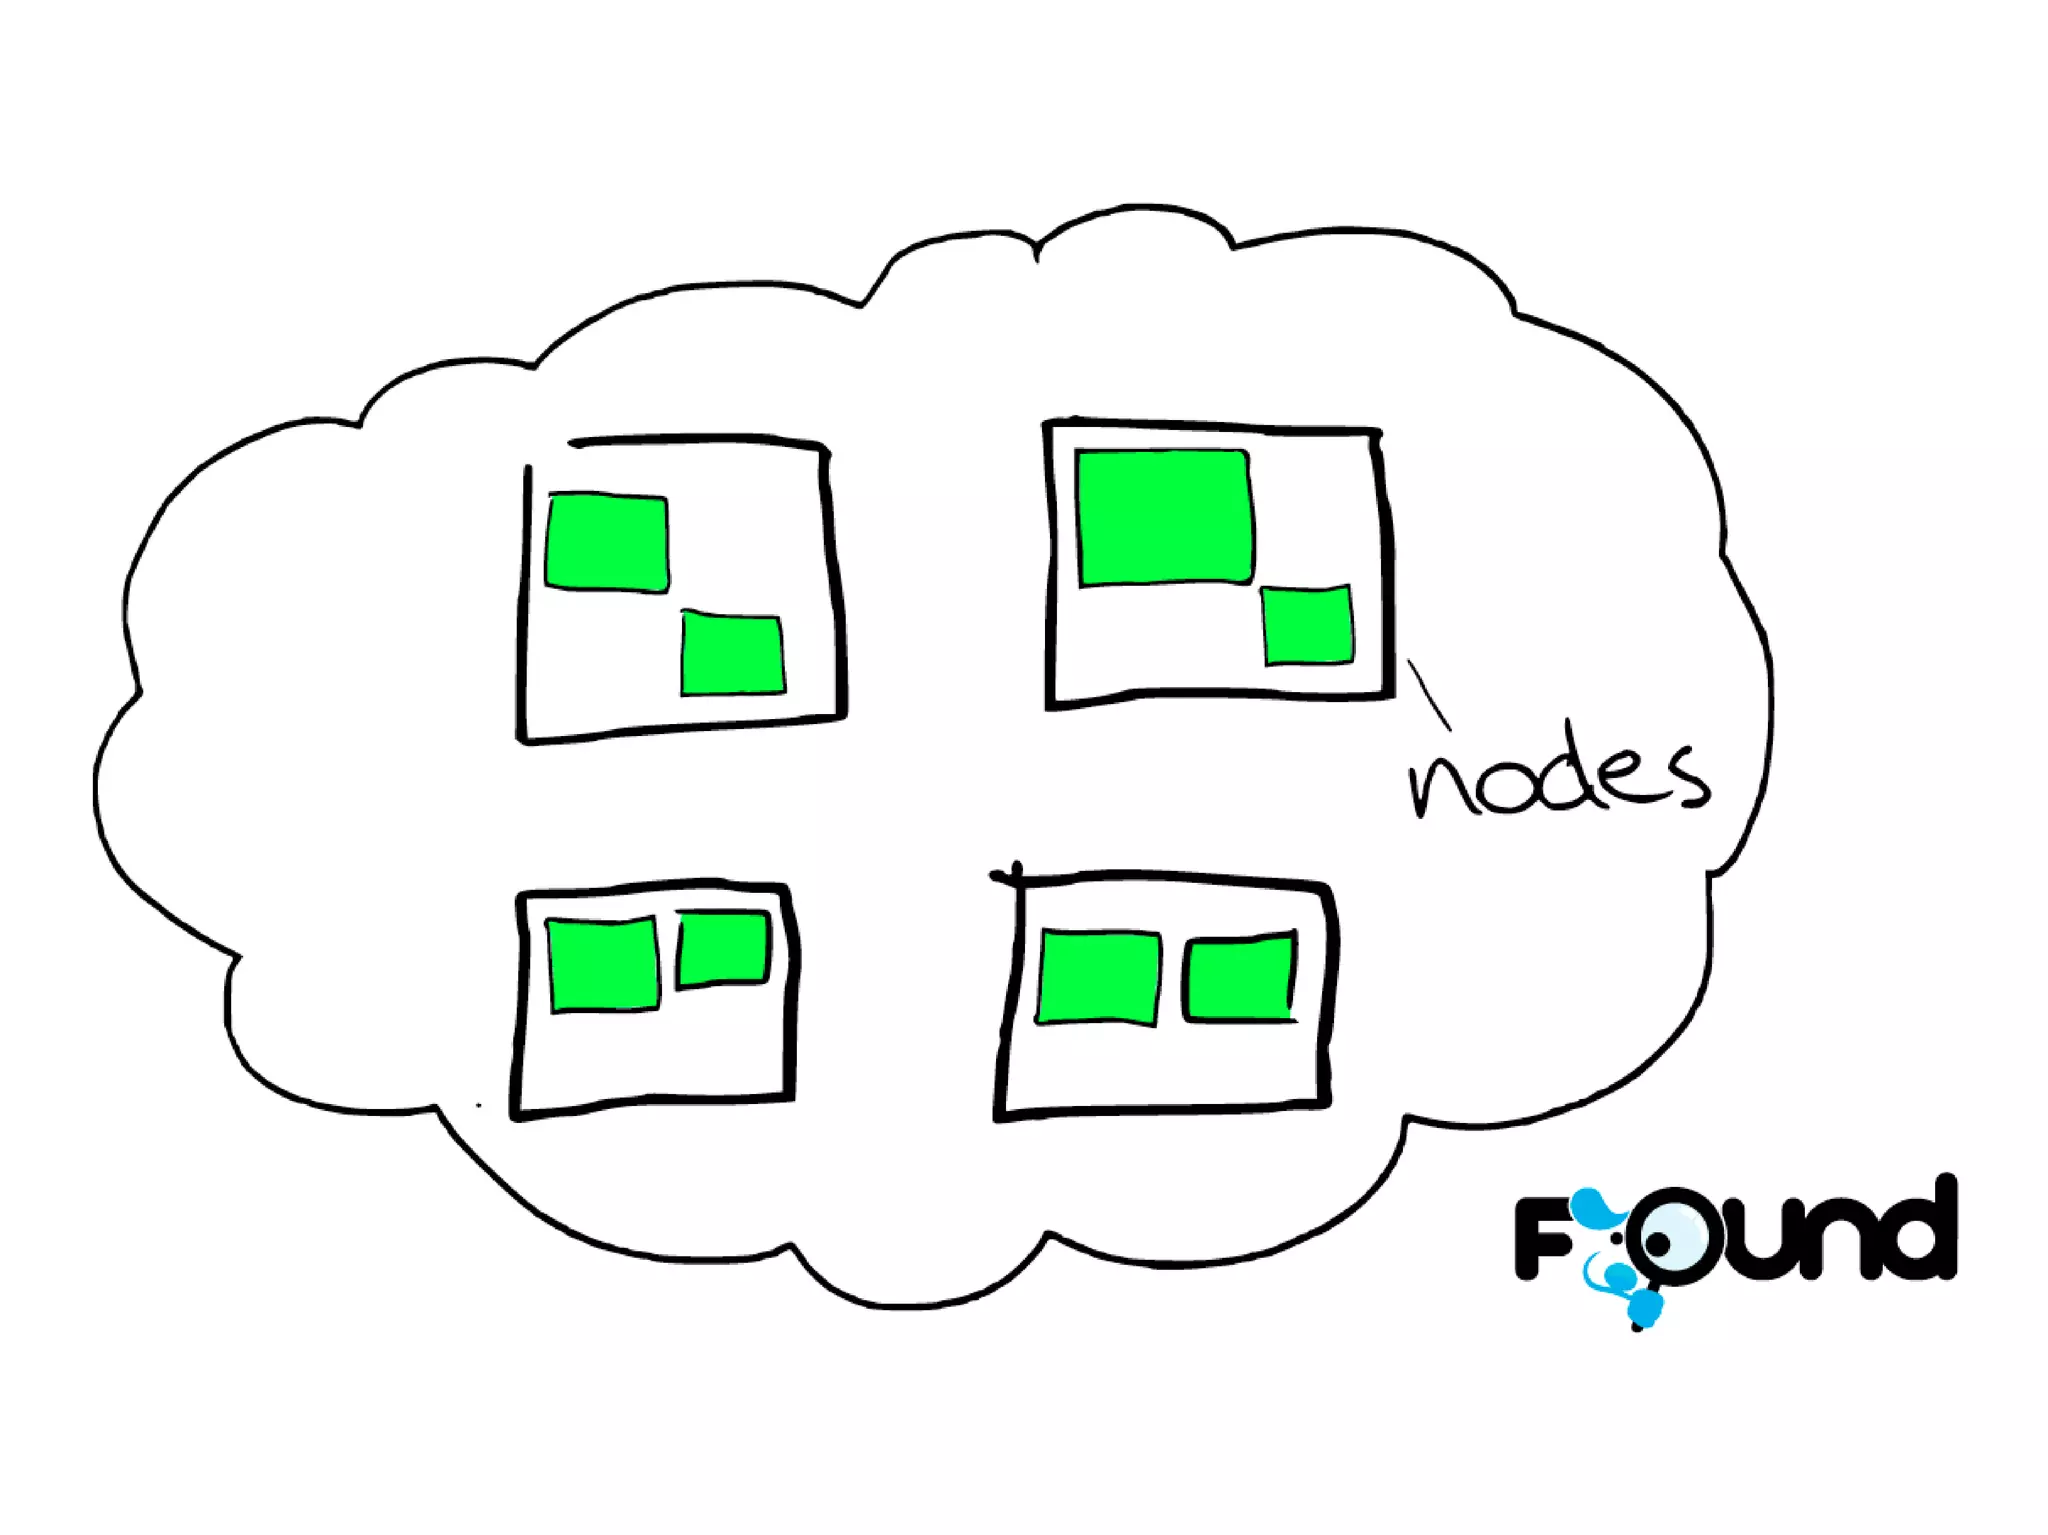 nodes
Found